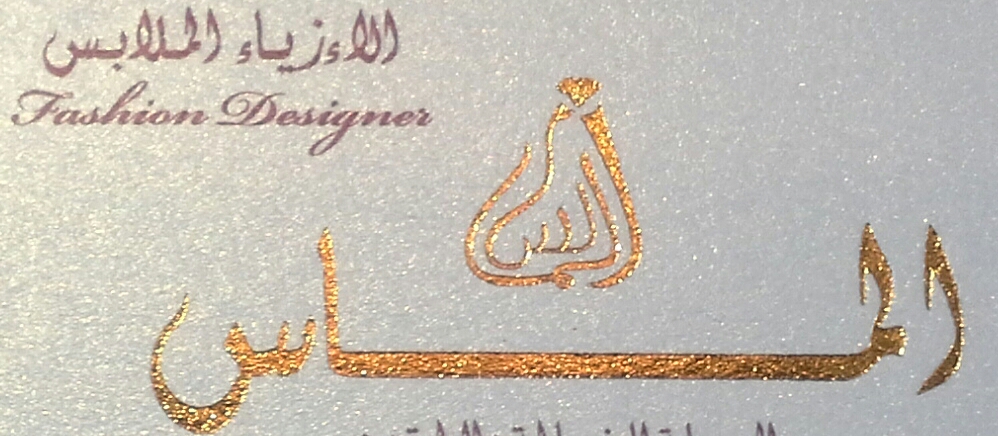 الاءزياء الملابس
Fashion Designer
الماس
الماس